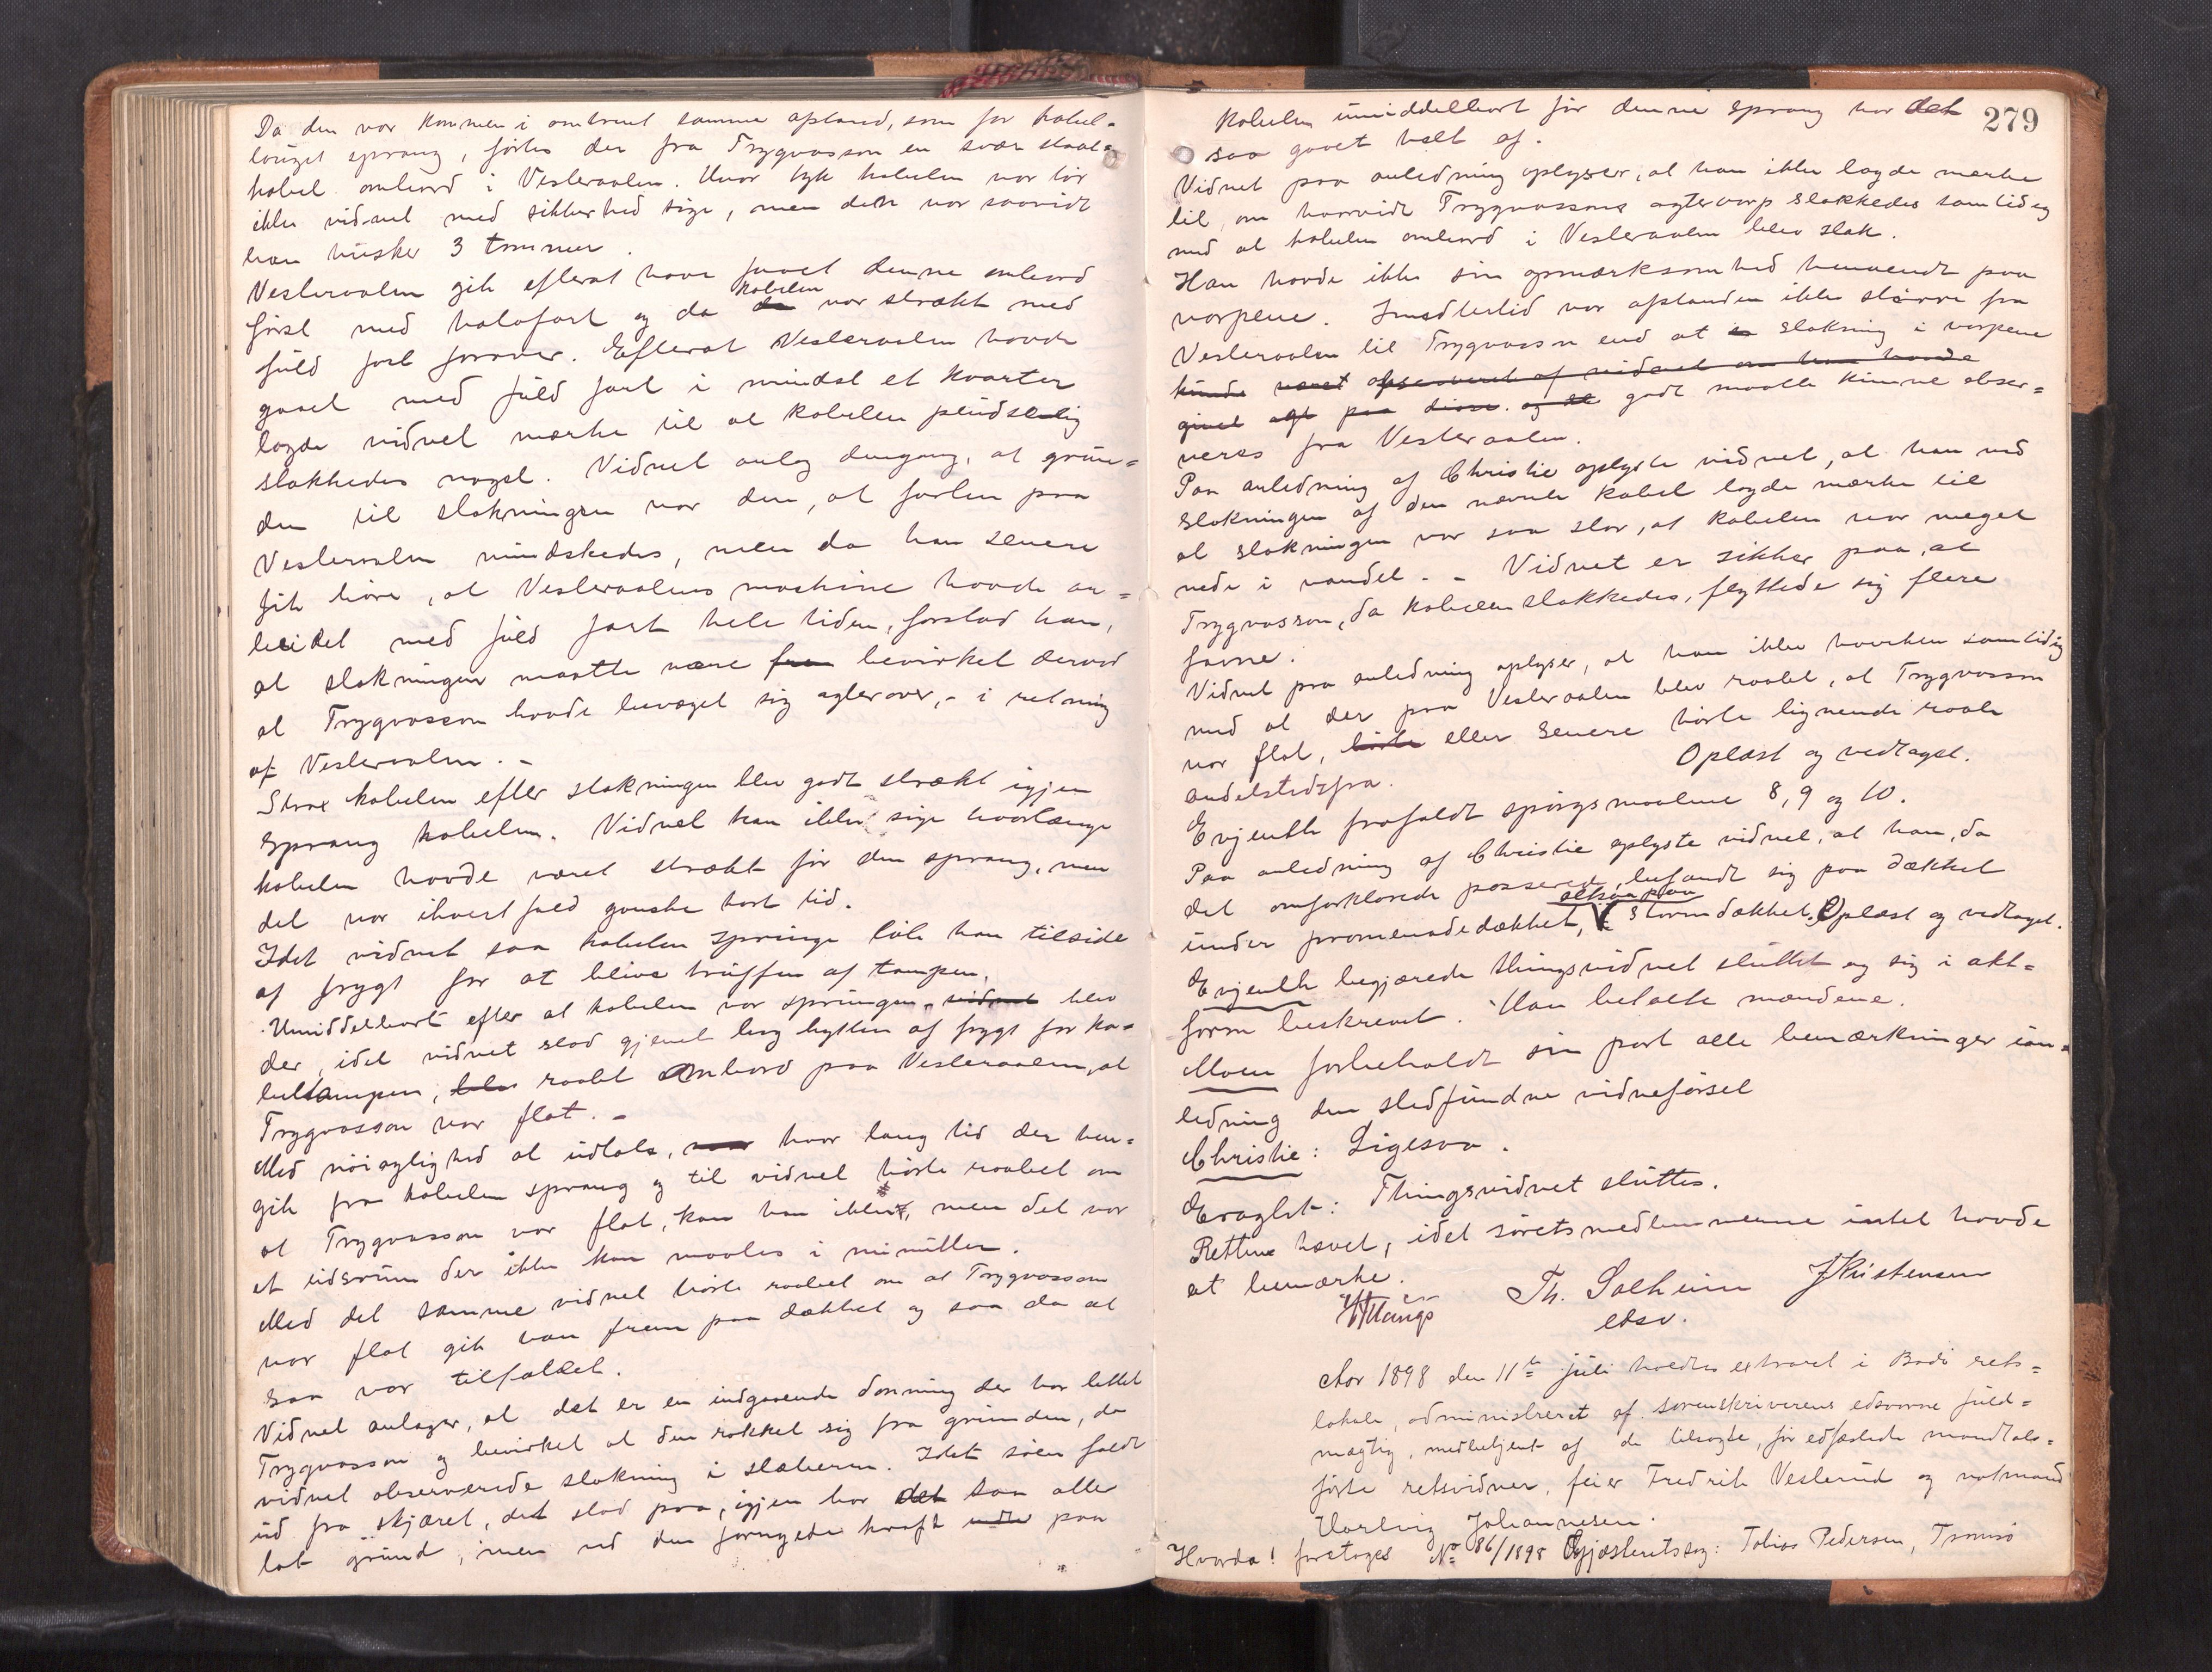 Da den var kommen i omtrent samme afstand, som før kabel-
louget sprang, førtes der fra Trygvasson en svær staal-
kabel ombord i Vesteraalen. Hvor tyk kabelen var tør
ikke vidnet med sikkerhed sige, men den var saavidt
han husker 3 tommer.
Vesteraalen gik efterat have faaet denne ombord
først med halvfart og da kabelen var strækt med
fuld fart forover. Efterat Vesteraalen havde
gaaet med fuld fart i mindst et kvarter
lagde vidnet mærke til at kabelen pludselig
slakkedes noget. Vidnet antog dengang, at grun-
den til slakningen var den, at farten paa
Vesteraalen mindskedes, men da han senere
fik høre, at Vesteraalens maskine havde ar-
beidet med fuld fart hele tiden, forstod han,
at slakningen maatte være bevirket derved
at Trygvasson havde bevæget sig agterover, - i retning
af Vesteraalen. -
Strax kabelen efter slakningen blev godt strækt igjen
sprang kabelen. Vidnet kan ikke sige hvorlænge
kabelen havde været strækt før den sprang, men
det var ihvertfald ganske kort tid.
Idet vidnet saa kabelen springe løb han tilside
af frygt for at blive truffen af tampen.
Umiddelbart efter at kabelen var sprungen, vidnet blev
der, idet vidnet stod gjemt bag hytten af frygt for ka-
beltampen, blev raabt ombord paa Vesteraalen, at
Trygvasson var flot. -
Med nøiagtighed at udtale, hvor lang tid der hen-
gik fra kabelen sprang og til vidnet hørte raabet om
at Trygvasson var flot, kan han ikke, men det var
et tidsrum der ikke kan maales i minutter.
Med det samme vidnet hørte raabet om at Trygvasson
var flot gik han frem paa dækket og saa da at
saa var tilfældet.
Vidnet antager, at det er en indgaaende dønning der har lettet
Trygvasson og bevirket at den rokket sig fra grunden, da
vidnet observerede slakning i slæberen. Idet søen faldt
ud fra skjæret, det stod paa, igjen har det saa atter
tat grund, men ved den fornyede kraft paa
279
kabelen umiddelbart før denne sprang har det
saa gaaet helt af.
Vidnet paa anledning oplyser, at han ikke lagde mærke
til, om hvorvidt Trygvassons agtervarp slakkedes samtidig
med at kabelen ombord i Vesteraalen blev slak.
Han havde ikke sin opmærksomhed henvendt paa
varpene. Imidlertid var afstanden ikke større fra
Vesteraalen til Trygvasson end at en slakning i varpene
kunde været observeret af vidnet om han havde
givet agt paa disse. og de godt maatte kunne obser-
veres fra Vesteraalen.
Paa anledning af Christie oplyste vidnet, at han ved
slakningen af den nævnte kabel lagde mærke til
at slakningen var saa stor, at kabelen var meget
nede i vandet. - Vidnet er sikker paa, at
Trygvasson, da kabelen slakkedes, flyttede sig flere
favne.
Vidnet paa anledning oplyser, at han ikke hverken samtidig
med at der paa Vesteraalen blev raabt, at Trygvasson
var flot, hørte eller senere hørte lignende raab
andetstedsfra.
Oplæst og vedtaget.
Evjenth frafaldt spørgsmaalene 8, 9 og 10.
Paa anledning af Christie oplyste vidnet, at han, da
det omforklarede passerede, befandt sig paa dækket
under promenadedækket, altsaa paa stormdækket. Oplæst og vedtaget.
Evjenth begjærede thingsvidnet sluttet og sig i akt-
form beskrevet. Han betalte mændene.
Moen forbeholdt sin part alle bemærkninger ian-
ledning den stedfundne vidneførsel
Christie: Ligesaa.
Eragtet: Thingsvidnet sluttes.
Retten hævet, idet søretsmedlemmerne intet havde
at bemærke.
Th. Solheim JKristensen
edsv.
Aar 1898 den 11te juli holdtes extraret i Bodø rets-
lokale, administreret af sorenskriverens edsvorne fuld-
mægtig, medbetjent af de tilsagte, før edfæstede mandtals-
førte retsvidner, feier Fredrik Vesterud og notmand
Hartvig Johannesen.
Hvorda! foretages No 86/1898 Gjæsteretssag: Tobias Pedersen, Tromsø